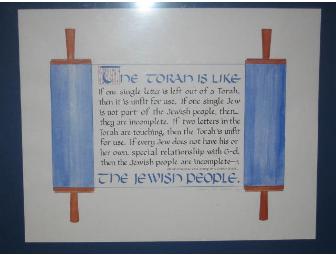 The Torah is like
If one single letter is left out of a Torah,
then it is unfit for use. If one single Jew
is not part of the Jewish people, then...
they are incomplete. If two letters in the
Torah are touching, then the Torah is unfit
for use. If every Jew does not have his or
her own, special relationship with G-d,
then the Jewish people are incomplete—
the Jewish people.